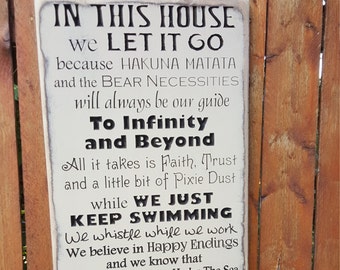 IN THIS HOUSE
we LET IT GO
because HAKUNA MATATA
and the BEAR NECESSITIES
will always be our guide
To Infinity
and Beyond
All it takes is Faith, Trust
and a little bit of Pixie Dust
while WE JUST
KEEP SWIMMING
We whistle while we work
We believe in Happy Endings
and we know that
The Sea